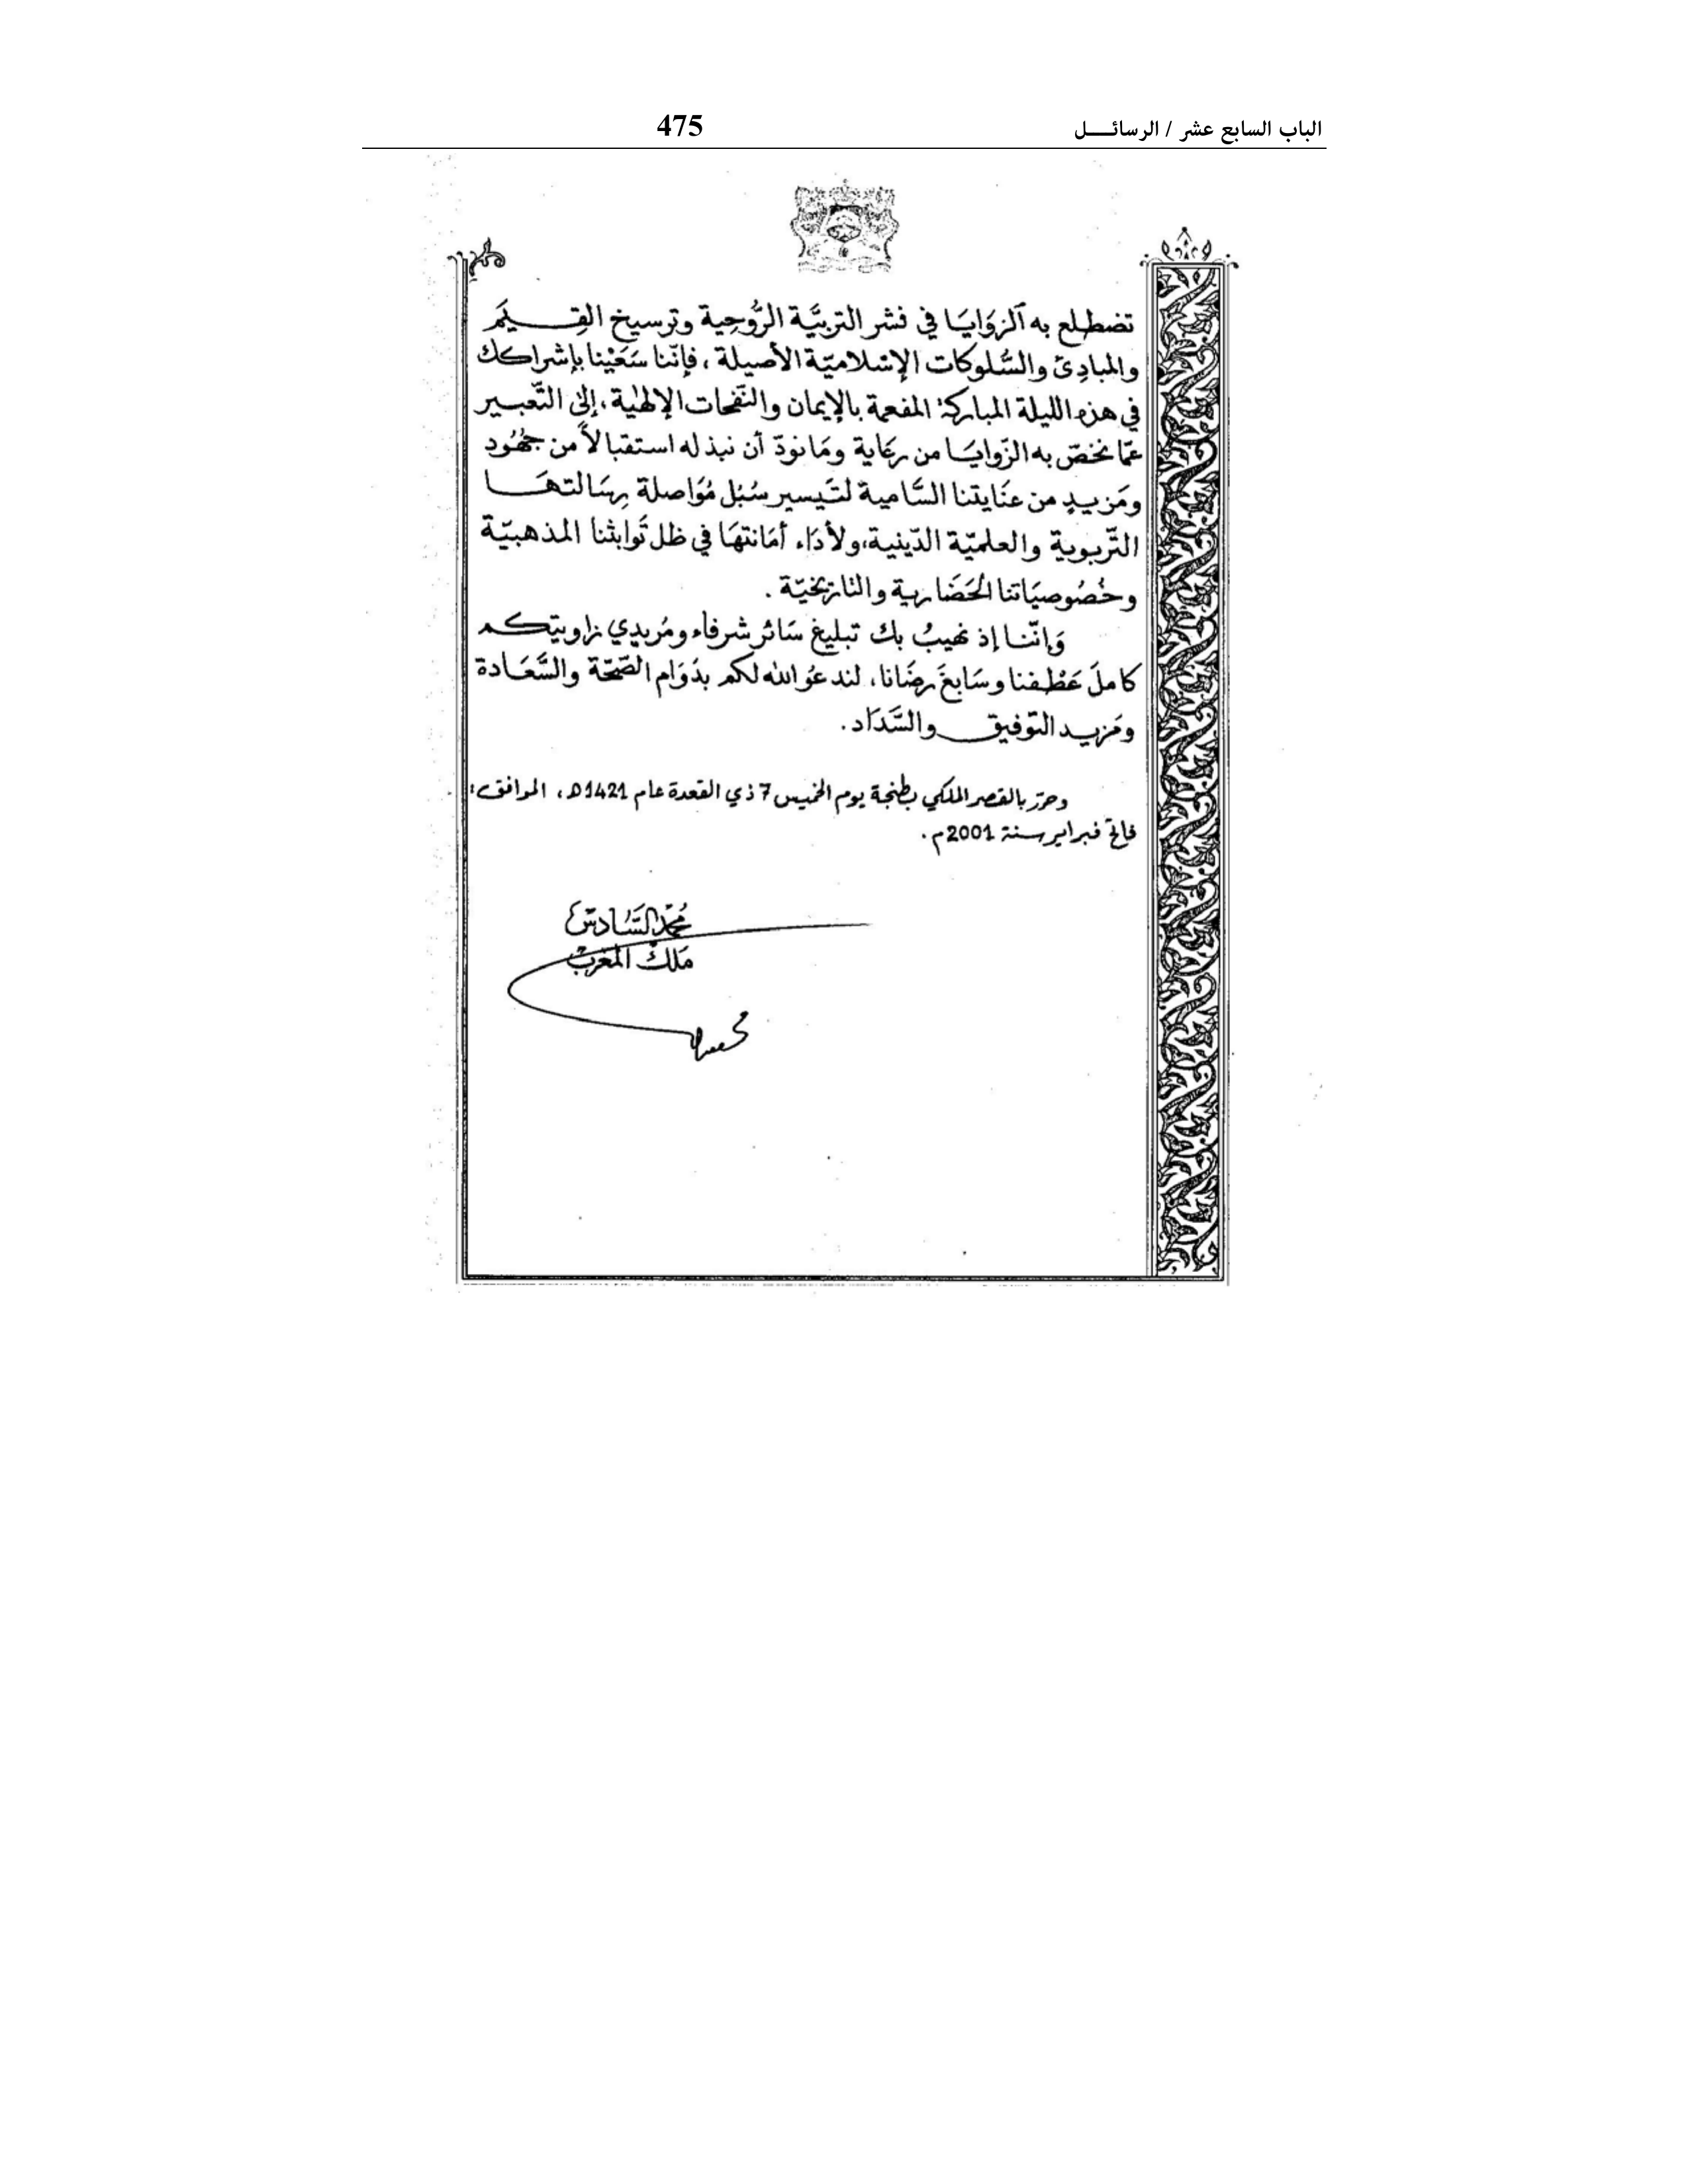 الباب السابع عشر / الرسائــــل 475
تضطلع به الزوَايَا في نشر التربيَّة الرُّوحِية وترسيخ القِـــيَم
والمبادِئ والسُّلوكات الإسْلاميّة الأصيلة، فإنّنا سَعَيْنا بإشراكك
في هذه الليلة المباركة المفعمة بالإيمان والنّفحات الإلهٰية، إلى التَّعبـير
عمّا نخصّ به الزّوايَا من رعَاية ومَا نودّ أن نبذله استقبالاً من جهُود
ومَزيدٍ من عنَايتنا السَّامية لتَيسير سُبُل مُوَاصلة رسَالتهَــا
التّربوية والعلميّة الدّينية، ولأدَاء أمَانتهَا في ظل ثَوابثنا المذهبيّة
وخُصُوصيَاتنا الحَضَارية والتاريخيّة .
وَإنّنا إذ نهيبُ بك تبليغ سَائر شرفاء ومُريدي زاويتكـم
كاملَ عَطْفنا وسَابغَ رضَانا، لندعُو الله لكم بدَوَام الصّحّة والسَّعَادة
ومَزيد التّوفيق والسَّدَاد.
وحرّر بالقصر الملكي بطنجة يوم الخميس 7 ذي القعدة عام 1421 هـ، الموافق:
فاتح فبراير سنة 2001م.
مُحمّد السَّادسُ
مَلكُ المَغرب